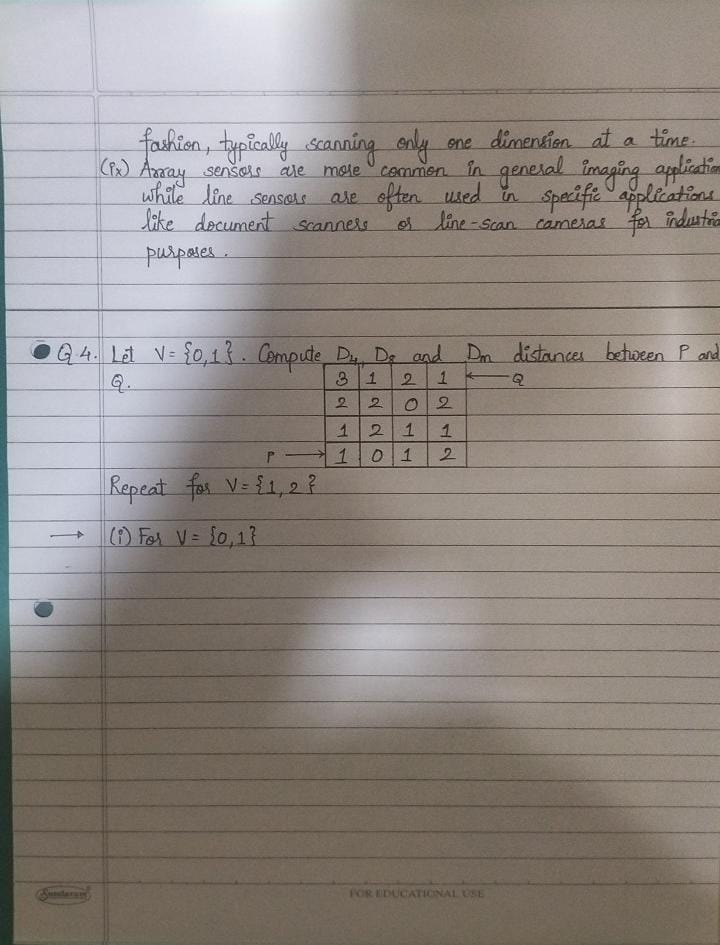 fashion, typically scanning only one dimension at a time.
(ix) Array sensors are more common in general imaging application
while line sensors are often used in specific applications
like document scanners or line-scan cameras for industria
purposes.
Q.4. Let V={0,1}. Compute D4, D8 and Dm distances between P and
Q.
3 1 2 1 ← Q
2 2 0 2
1 2 1 1
P → 1 0 1 2
Repeat for V={1,2}
→ (i) For V={0,1}
Sundaram FOR EDUCATIONAL USE